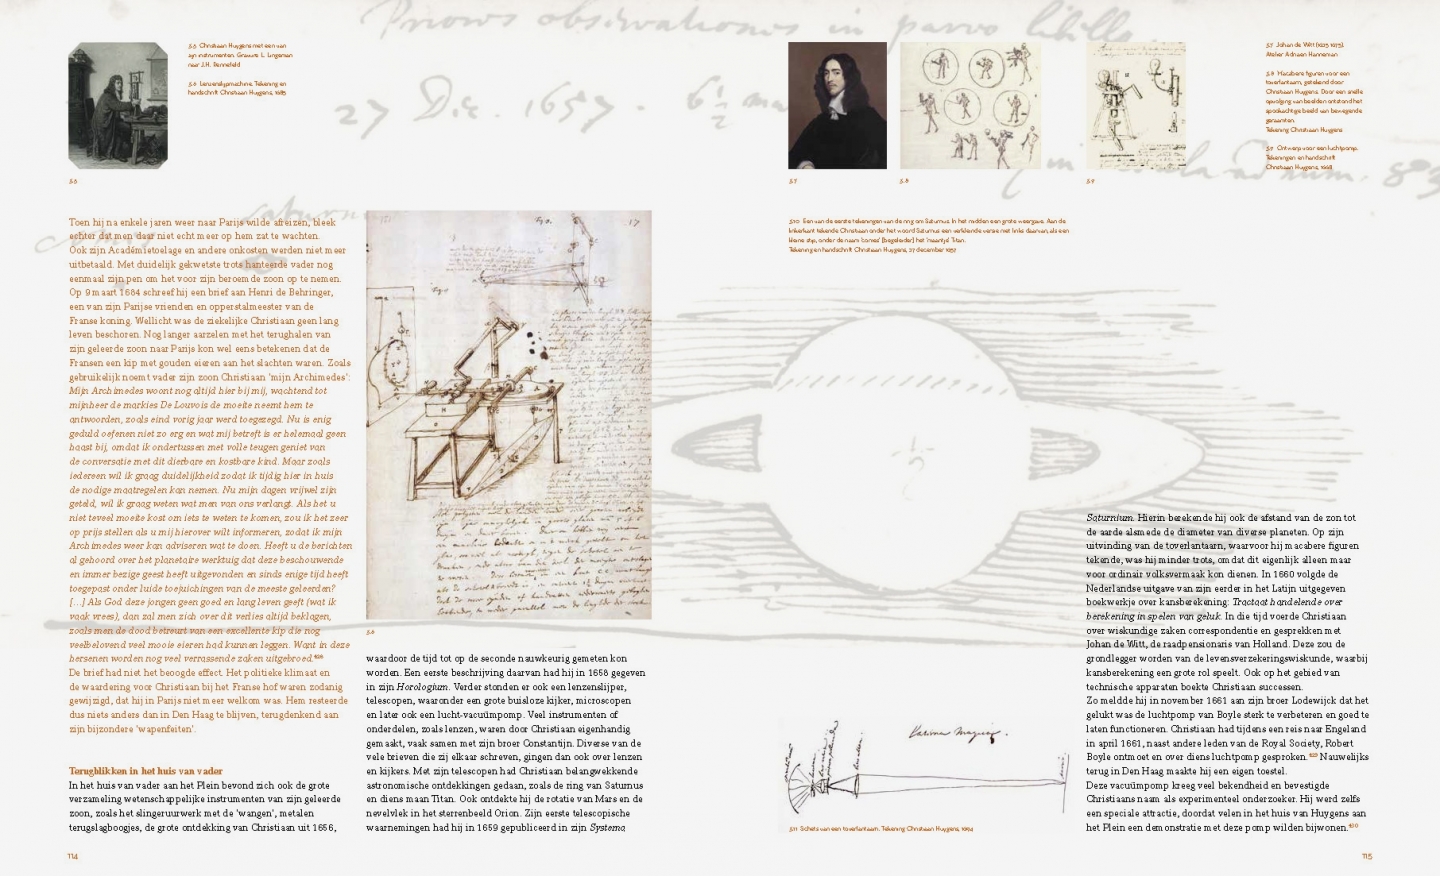 Priores observationes in parvo libello.
27 Dec. 1657.
5.5 Christiaan Huygens met een van
zijn instrumenten. Gravure L. Lingeman
naar J.H. Rennefeld
5.6 Lenzenslijpmachine. Tekening en
handschrift Christiaan Huygens, 1685
5.5
5.7
5.8
5.9
5.7 Johan de Witt (1625-1672).
Atelier Adriaen Hanneman
5.8 Macabere figuren voor een
toverlantaarn, getekend door
Christiaan Huygens. Door een snelle
opvolging van beelden ontstond het
spookachtige beeld van bewegende
geraamten.
Tekening Christiaan Huygens
5.9 Ontwerp voor een luchtpomp.
Tekeningen en handschrift
Christiaan Huygens, 1668
5.10 Een van de eerste tekeningen van de ring om Saturnus. In het midden een grote weergave. Aan de
linkerkant tekende Christiaan onder het woord Saturnus een verkleinde versie met links daarvan, als een
kleine stip, onder de naam 'comes' (begeleider) het 'maantje' Titan.
Tekening en handschrift Christiaan Huygens, 27 december 1657
Toen hij na enkele jaren weer naar Parijs wilde afreizen, bleek
echter dat men daar niet echt meer op hem zat te wachten.
Ook zijn Académietoelage en andere onkosten werden niet meer
uitbetaald. Met duidelijk gekwetste trots hanteerde vader nog
eenmaal zijn pen om het voor zijn beroemde zoon op te nemen.
Op 9 maart 1684 schreef hij een brief aan Henri de Behringer,
een van zijn Parijse vrienden en opperstalmeester van de
Franse koning. Wellicht was de ziekelijke Christiaan geen lang
leven beschoren. Nog langer aarzelen met het terughalen van
zijn geleerde zoon naar Parijs kon wel eens betekenen dat de
Fransen een kip met gouden eieren aan het slachten waren. Zoals
gebruikelijk noemt vader zijn zoon Christiaan 'mijn Archimedes':
Mijn Archimedes woont nog altijd hier bij mij, wachtend tot
mijnheer de markies De Louvois de moeite neemt hem te
antwoorden, zoals eind vorig jaar werd toegezegd. Nu is enig
geduld oefenen niet zo erg en wat mij betreft is er helemaal geen
haast bij, omdat ik ondertussen met volle teugen geniet van
de conversatie met dit dierbare en kostbare kind. Maar zoals
iedereen wil ik graag duidelijkheid zodat ik tijdig hier in huis
de nodige maatregelen kan nemen. Nu mijn dagen vrijwel zijn
geteld, wil ik graag weten wat men van ons verlangt. Als het u
niet teveel moeite kost om iets te weten te komen, zou ik het zeer
op prijs stellen als u mij hierover wilt informeren, zodat ik mijn
Archimedes weer kan adviseren wat te doen. Heeft u de berichten
al gehoord over het planetaire werktuig dat deze beschouwende
en immer bezige geest heeft uitgevonden en sinds enige tijd heeft
toegepast onder luide toejuichingen van de meeste geleerden?
[...] Als God deze jongen geen goed en lang leven geeft (wat ik
vaak vrees), dan zal men zich over dit verlies altijd beklagen,
zoals men de dood betreurt van een excellente kip die nog
veelbelovend veel mooie eieren had kunnen leggen. Want in deze
hersenen worden nog veel verrassende zaken uitgebroed.
De brief had niet het beoogde effect. Het politieke klimaat en
de waardering voor Christiaan bij het Franse hof waren zodanig
gewijzigd, dat hij in Parijs niet meer welkom was. Hem resteerde
dus niets anders dan in Den Haag te blijven, terugdenkend aan
zijn bijzondere 'wapenfeiten'.
Terugblikken in het huis van vader
In het huis van vader aan het Plein bevond zich ook de grote
verzameling wetenschappelijke instrumenten van zijn geleerde
zoon, zoals het slingeruurwerk met de 'wangen', metalen
terugslagboogjes, de grote ontdekking van Christiaan uit 1656,
114
17
5.6
waardoor de tijd tot op de seconde nauwkeurig gemeten kon
worden. Een eerste beschrijving daarvan had hij in 1658 gegeven
in zijn Horologium. Verder stonden er ook een lenzenslijper,
telescopen, waaronder een grote buisloze kijker, microscopen
en later ook een lucht-vacuümpomp. Veel instrumenten of
onderdelen, zoals lenzen, waren door Christiaan eigenhandig
gemaakt, vaak samen met zijn broer Constantijn. Diverse van de
vele brieven die zij elkaar schreven, gingen dan ook over lenzen
en kijkers. Met zijn telescopen had Christiaan belangwekkende
astronomische ontdekkingen gedaan, zoals de ring van Saturnus
en diens maan Titan. Ook ontdekte hij de rotatie van Mars en de
nevelvlek in het sterrenbeeld Orion. Zijn eerste telescopische
waarnemingen had hij in 1659 gepubliceerd in zijn Systema
5.11 Schets van een toverlantaarn. Tekening Christiaan Huygens, 1694
Saturnium. Hierin berekende hij ook de afstand van de zon tot
de aarde alsmede de diameter van diverse planeten. Op zijn
uitvinding van de toverlantaarn, waarvoor hij macabere figuren
tekende, was hij minder trots, omdat dit eigenlijk alleen maar
voor ordinair volksvermaak kon dienen. In 1660 volgde de
Nederlandse uitgave van zijn eerder in het Latijn uitgegeven
boekwerkje over kansberekening: Tractaat handelende over
berekening in spelen van geluk. In die tijd voerde Christiaan
over wiskundige zaken correspondentie en gesprekken met
Johan de Witt, de raadpensionaris van Holland. Deze zou de
grondlegger worden van de levensverzekeringswiskunde, waarbij
kansberekening een grote rol speelt. Ook op het gebied van
technische apparaten boekte Christiaan successen.
Zo meldde hij in november 1661 aan zijn broer Lodewijck dat het
gelukt was de luchtpomp van Boyle sterk te verbeteren en goed te
laten functioneren. Christiaan had tijdens een reis naar Engeland
in april 1661, naast andere leden van de Royal Society, Robert
Boyle ontmoet en over diens luchtpomp gesproken. Nauwelijks
terug in Den Haag maakte hij een eigen toestel.
Deze vacuümpomp kreeg veel bekendheid en bevestigde
Christiaans naam als experimenteel onderzoeker. Hij werd zelfs
een speciale attractie, doordat velen in het huis van Huygens aan
het Plein een demonstratie met deze pomp wilden bijwonen.
115